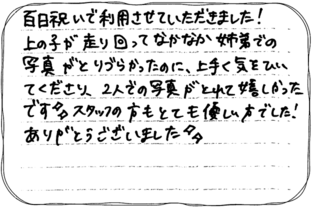 百日祝いで利用させていただきました!
上の子が走り回ってなかなか姉弟での
写真がとりづらかったのに、上手く気をひい
てくださり、2人での写真がとれて嬉しかった
です♪ スタッフの方もとても優しい方でした!
ありがとうございました♪